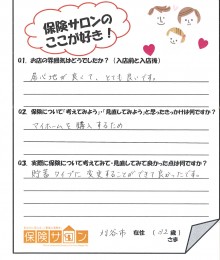 保険サロンの
ここが好き！
Q1. お店の雰囲気はどうでしたか？（入店前と入店後）
居心地が良くて、とても良いです。
Q2. 保険について「考えてみよう」・「見直してみよう」と思ったきっかけは何ですか？
マイホームを購入するため
Q3. 実際に保険について考えてみて・見直してみて良かった点は何ですか？
貯蓄タイプに変更することができて良かったです。
保険サロン
刈谷市 在住 ( 32 歳)
さま